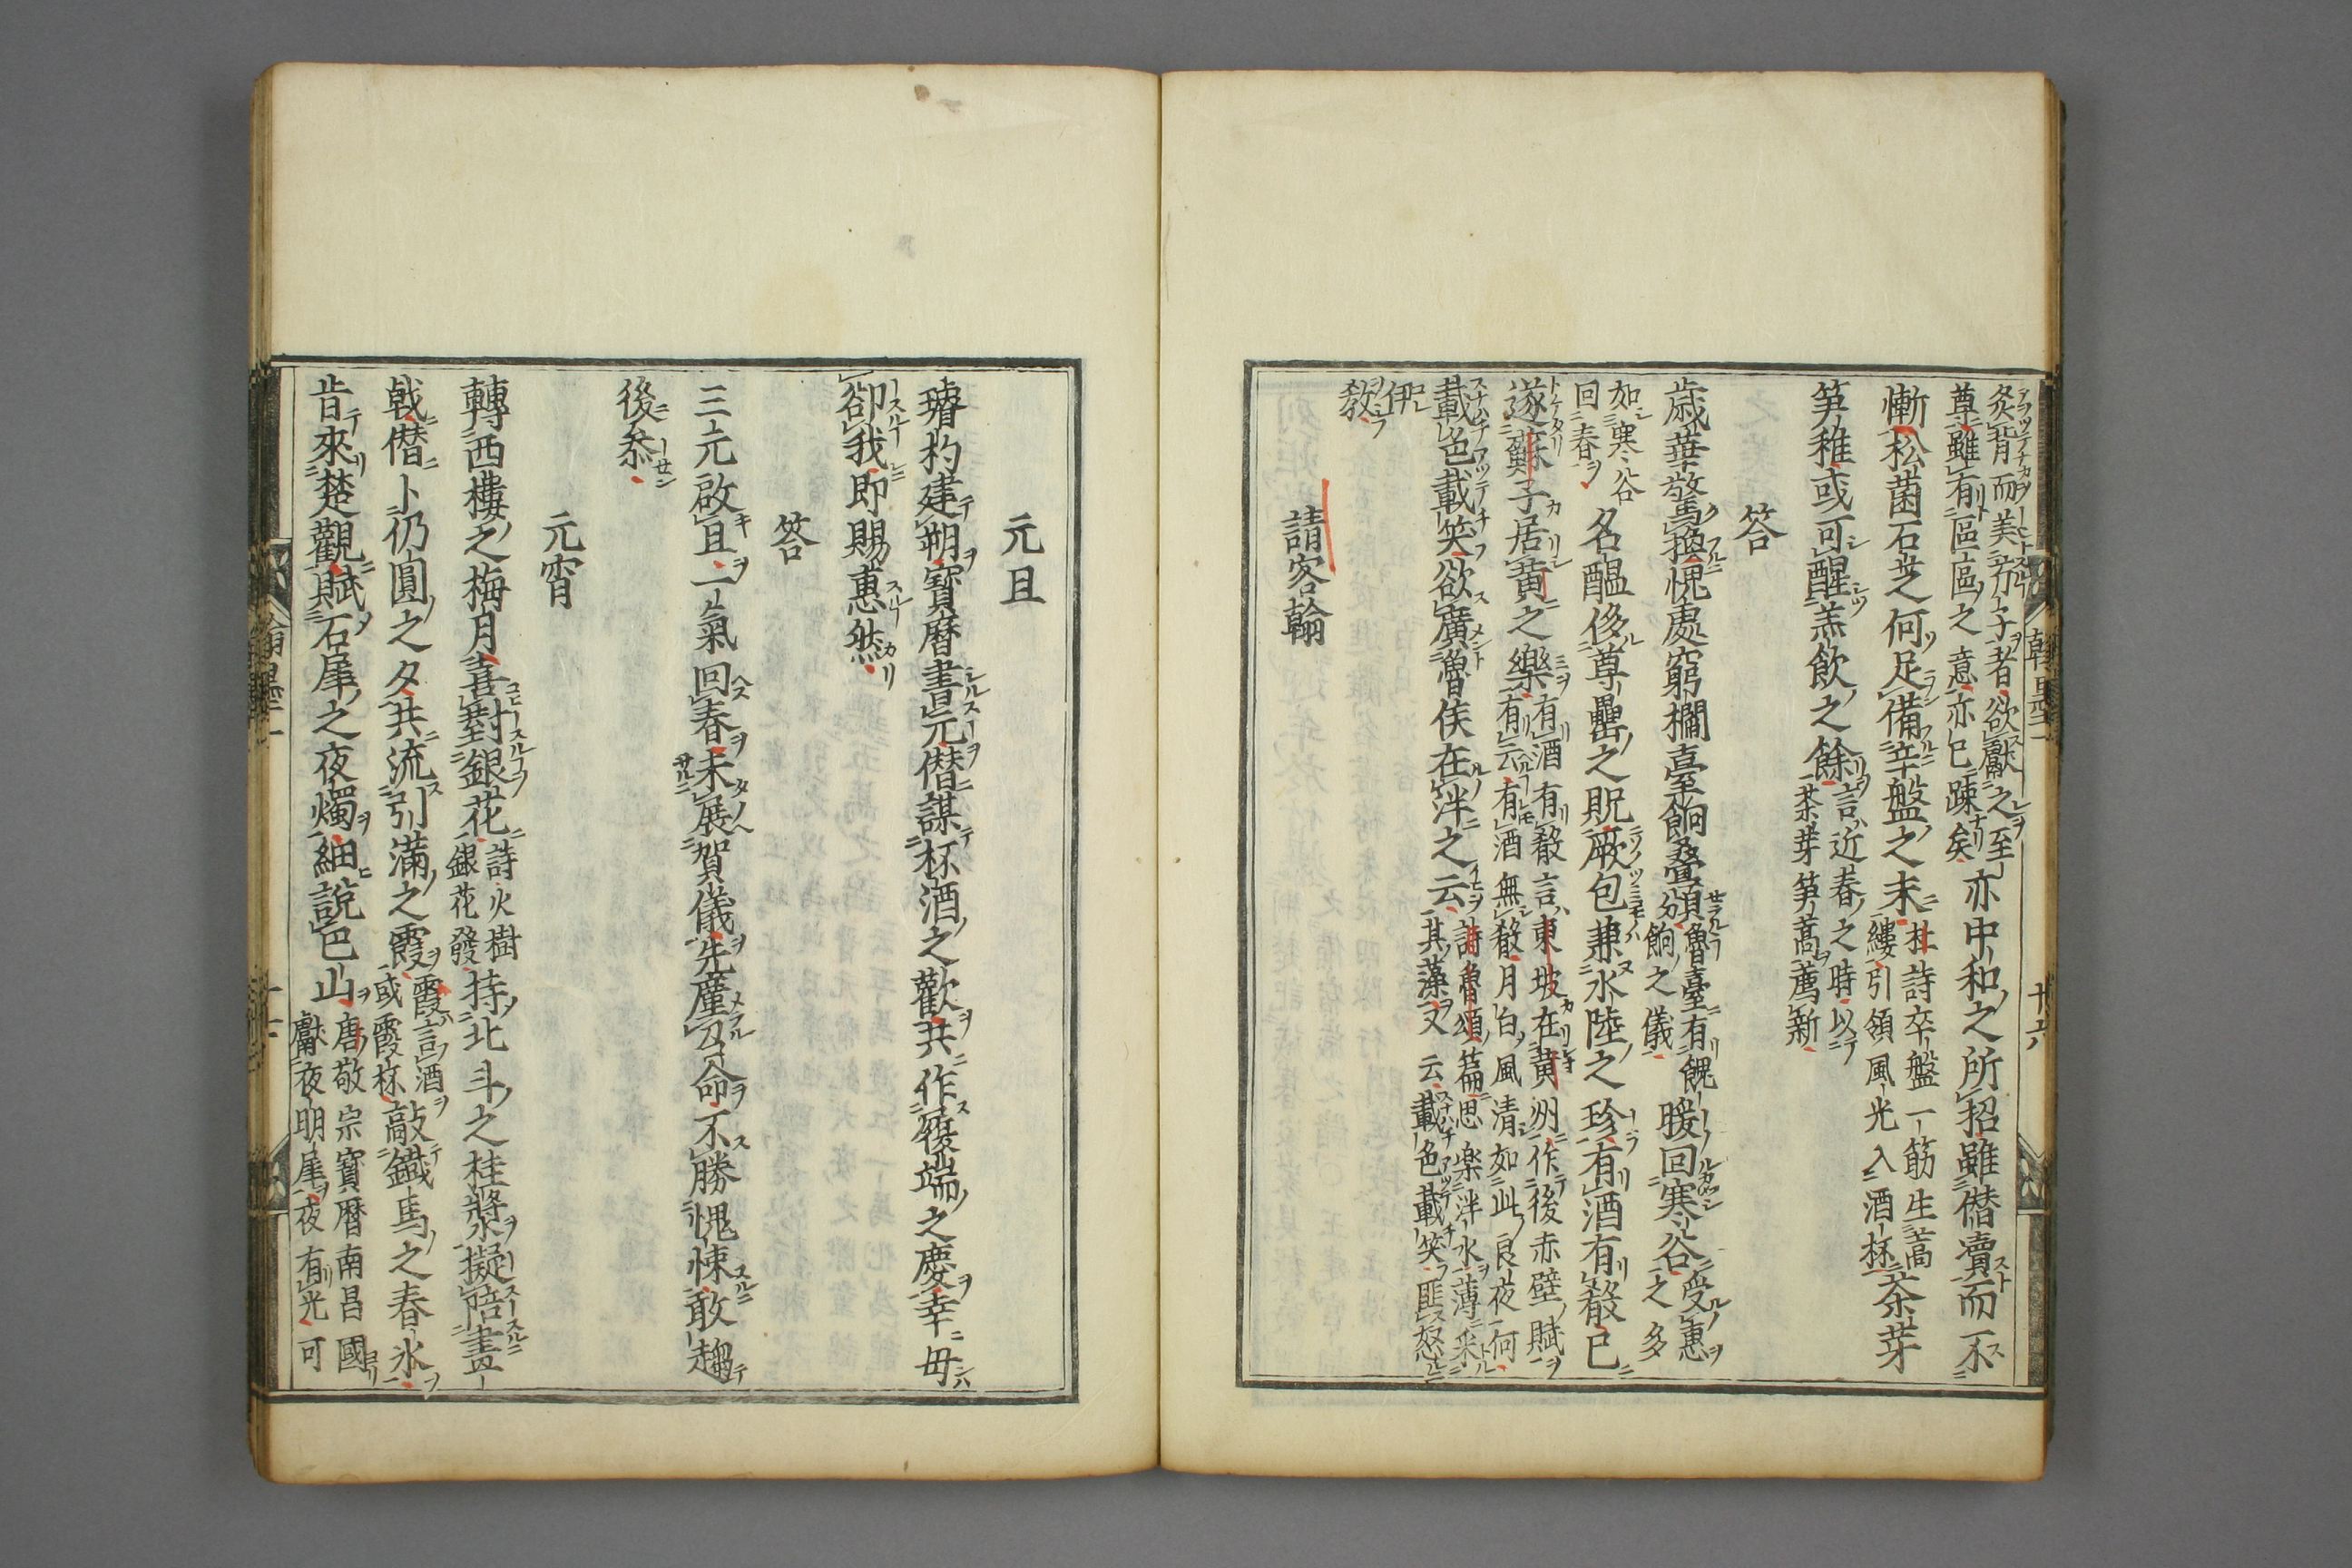 炙背而美芹子者欲獻之至
尊雖有區區之意亦已踈矣
亦中和之所招雖僣瀆而不
慚松菌石芝何足備辛盤之末
杜詩卒盤一筯生菜
縷引領風光入酒杯
茶芽
笋稚或可醒羔飲之餘
言近春之時以
茶芽笋蒿薦新
答
歳華驚換愧處窮櫩臺餉疊頒
魯臺有餽
餉之儀
暖回寒谷
受惠之多
如寒谷
回春
名醞侈尊罍之貺厥包兼水陸之珍有酒有殽已
遂蘇子居黄之樂
有酒有殽言東坡在黄州作後赤壁賦
有云有酒無殽月白風清如此良夜何
載色載笑欲廣魯侯在泮之云
詩魯頌篇思樂泮水薄采
其藻又云載色載笑匪怒
伊
教
請客翰
翰墨一
十六
元旦
璿杓建朔寶曆書元僣謀杯酒之歡共作履端之慶幸毋
卻我即賜惠然
答
三元啟旦一氣回春未展賀儀先塵召命不勝愧悚敢趨
後叅
元宵
轉西樓之梅月喜對銀花
詩火樹
銀花發
持北斗之桂漿擬陪畫
戟僣卜仍圓之夕共流引滿之霞
霞言酒
或霞杯
敲鐵馬之春氷
昔來楚觀賦石犀之夜燭細說巴山
唐敬宗寶曆南昌國
獻夜明犀夜有光可